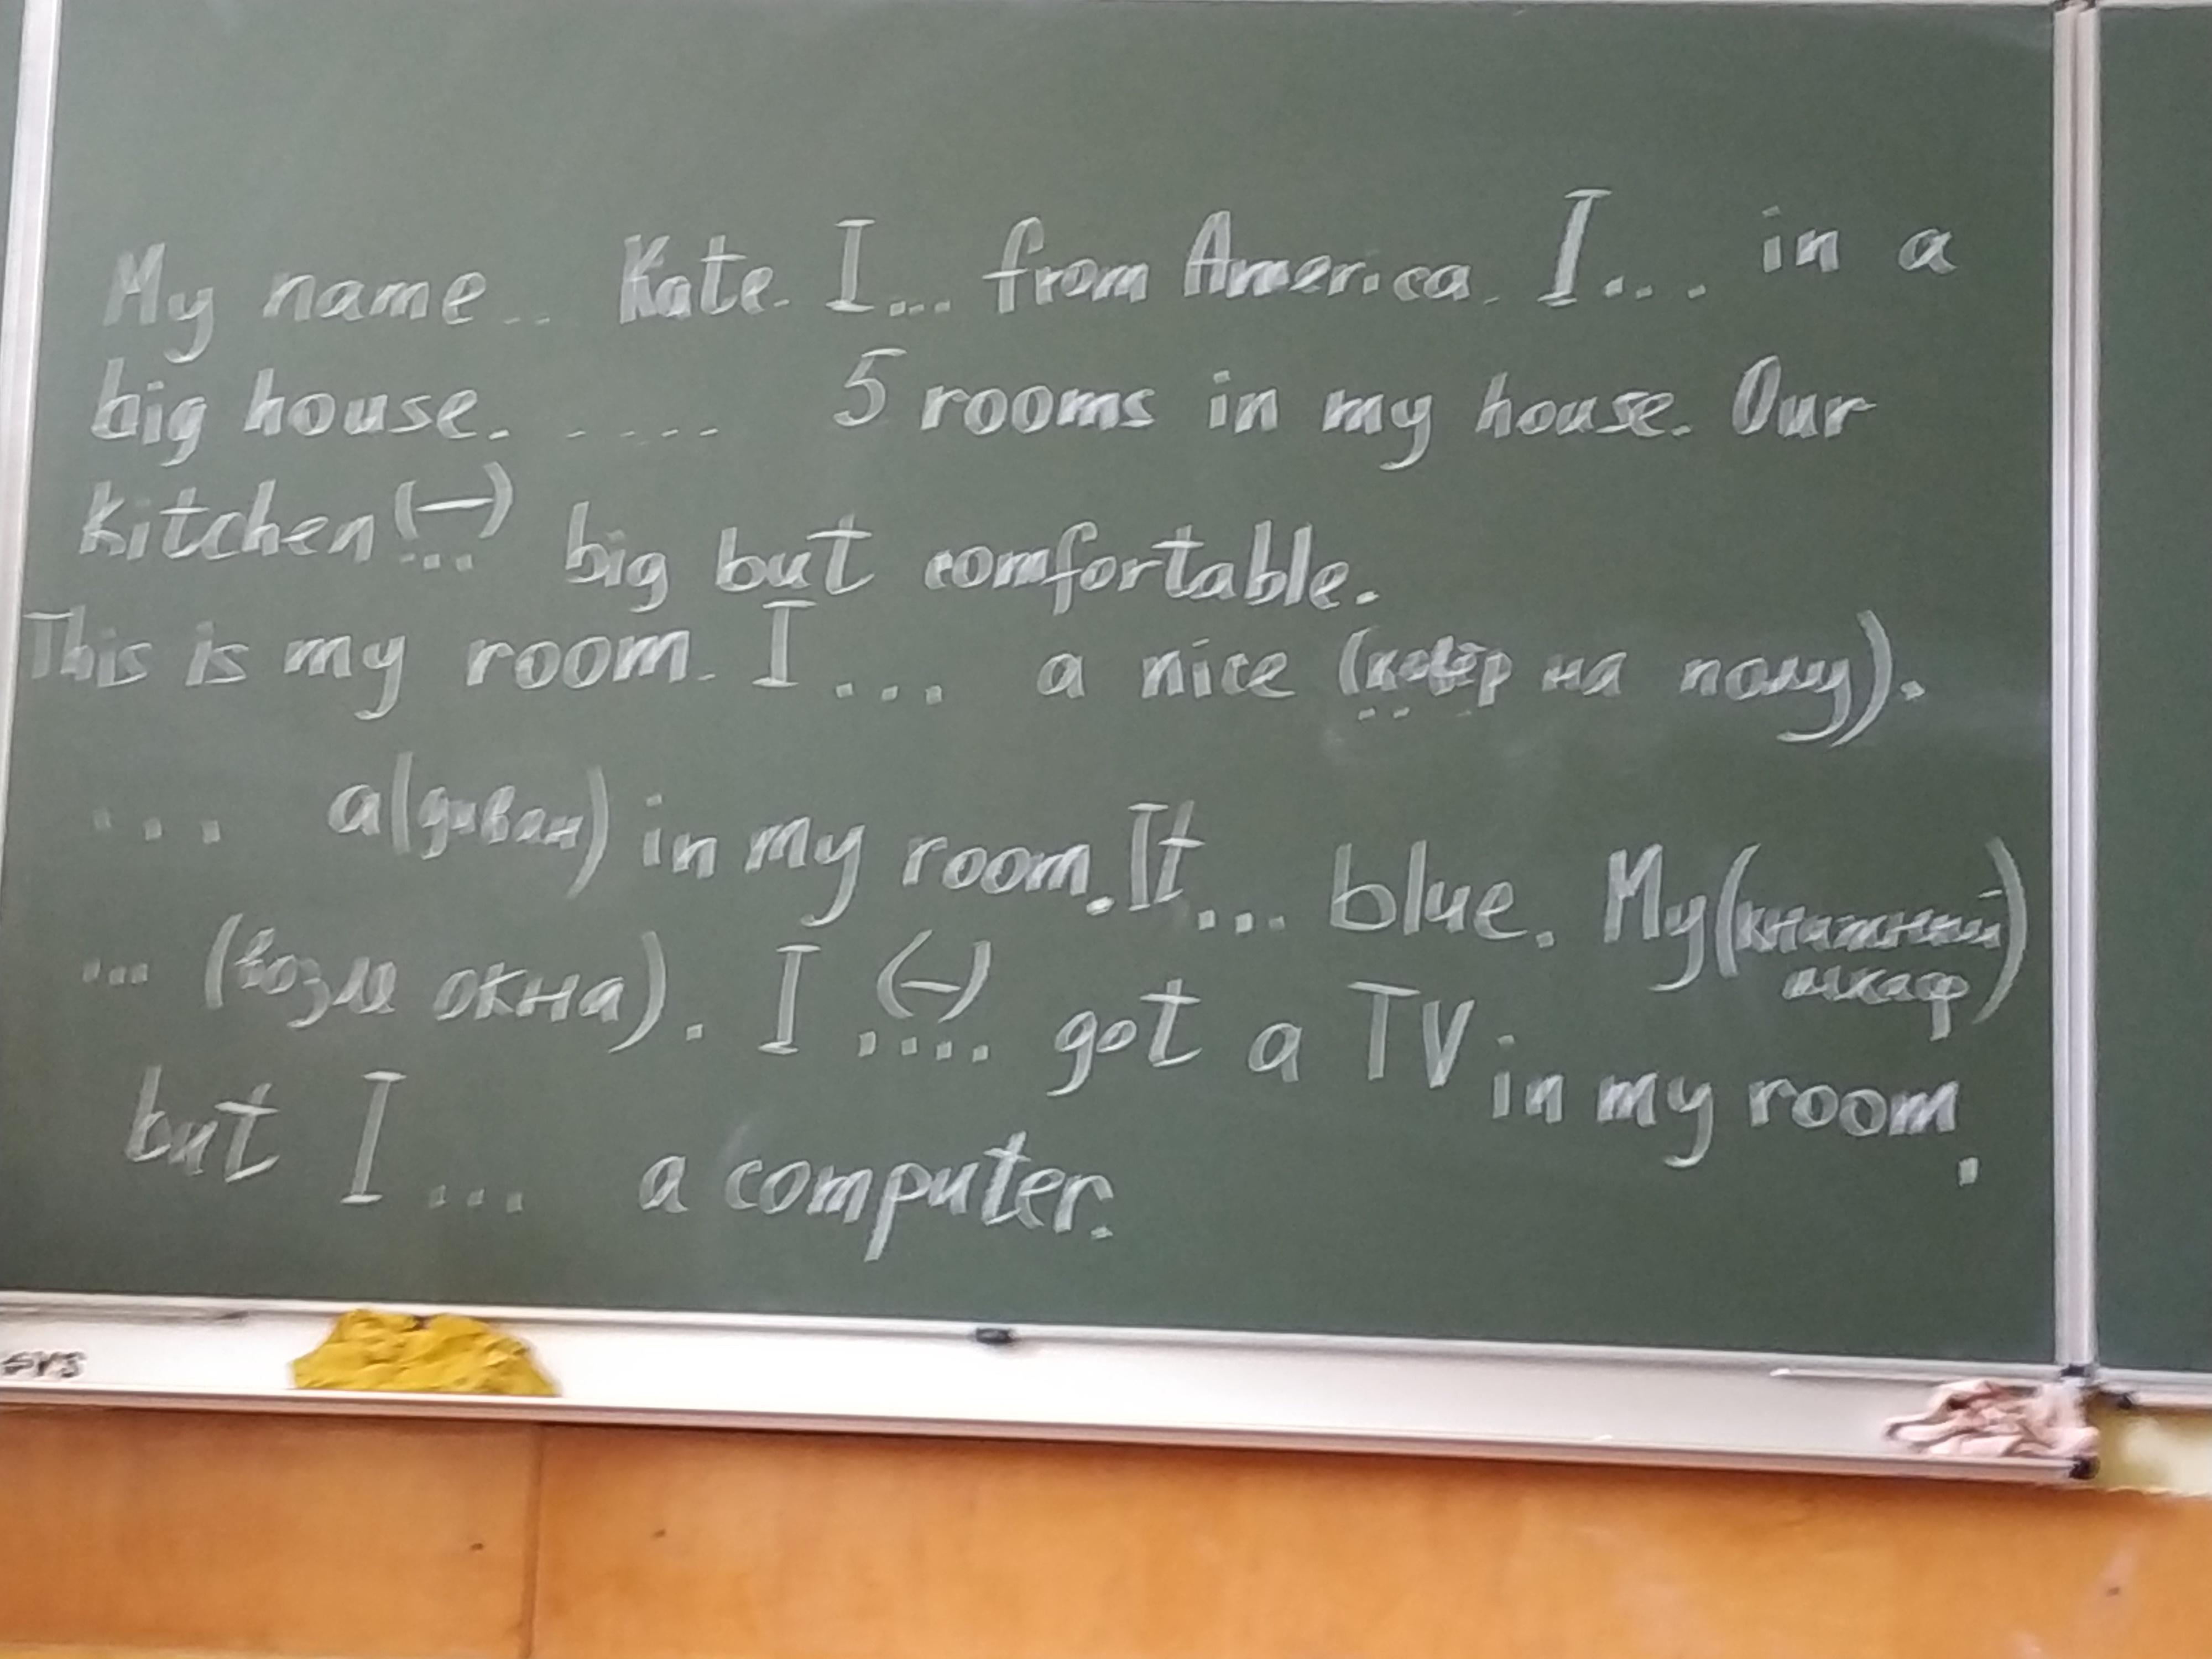 My name .. Kate. I... from America. I.... in a
big house. ..... 5 rooms in my house. Our
kitchen (—) ... big but comfortable.
This is my room. I ... a nice (ковёр на полу).
... a (диван) in my room. It ... blue. My (книжный
шкаф)
... (возле окна). I (-) .... got a TV in my room.
but I ... a computer.